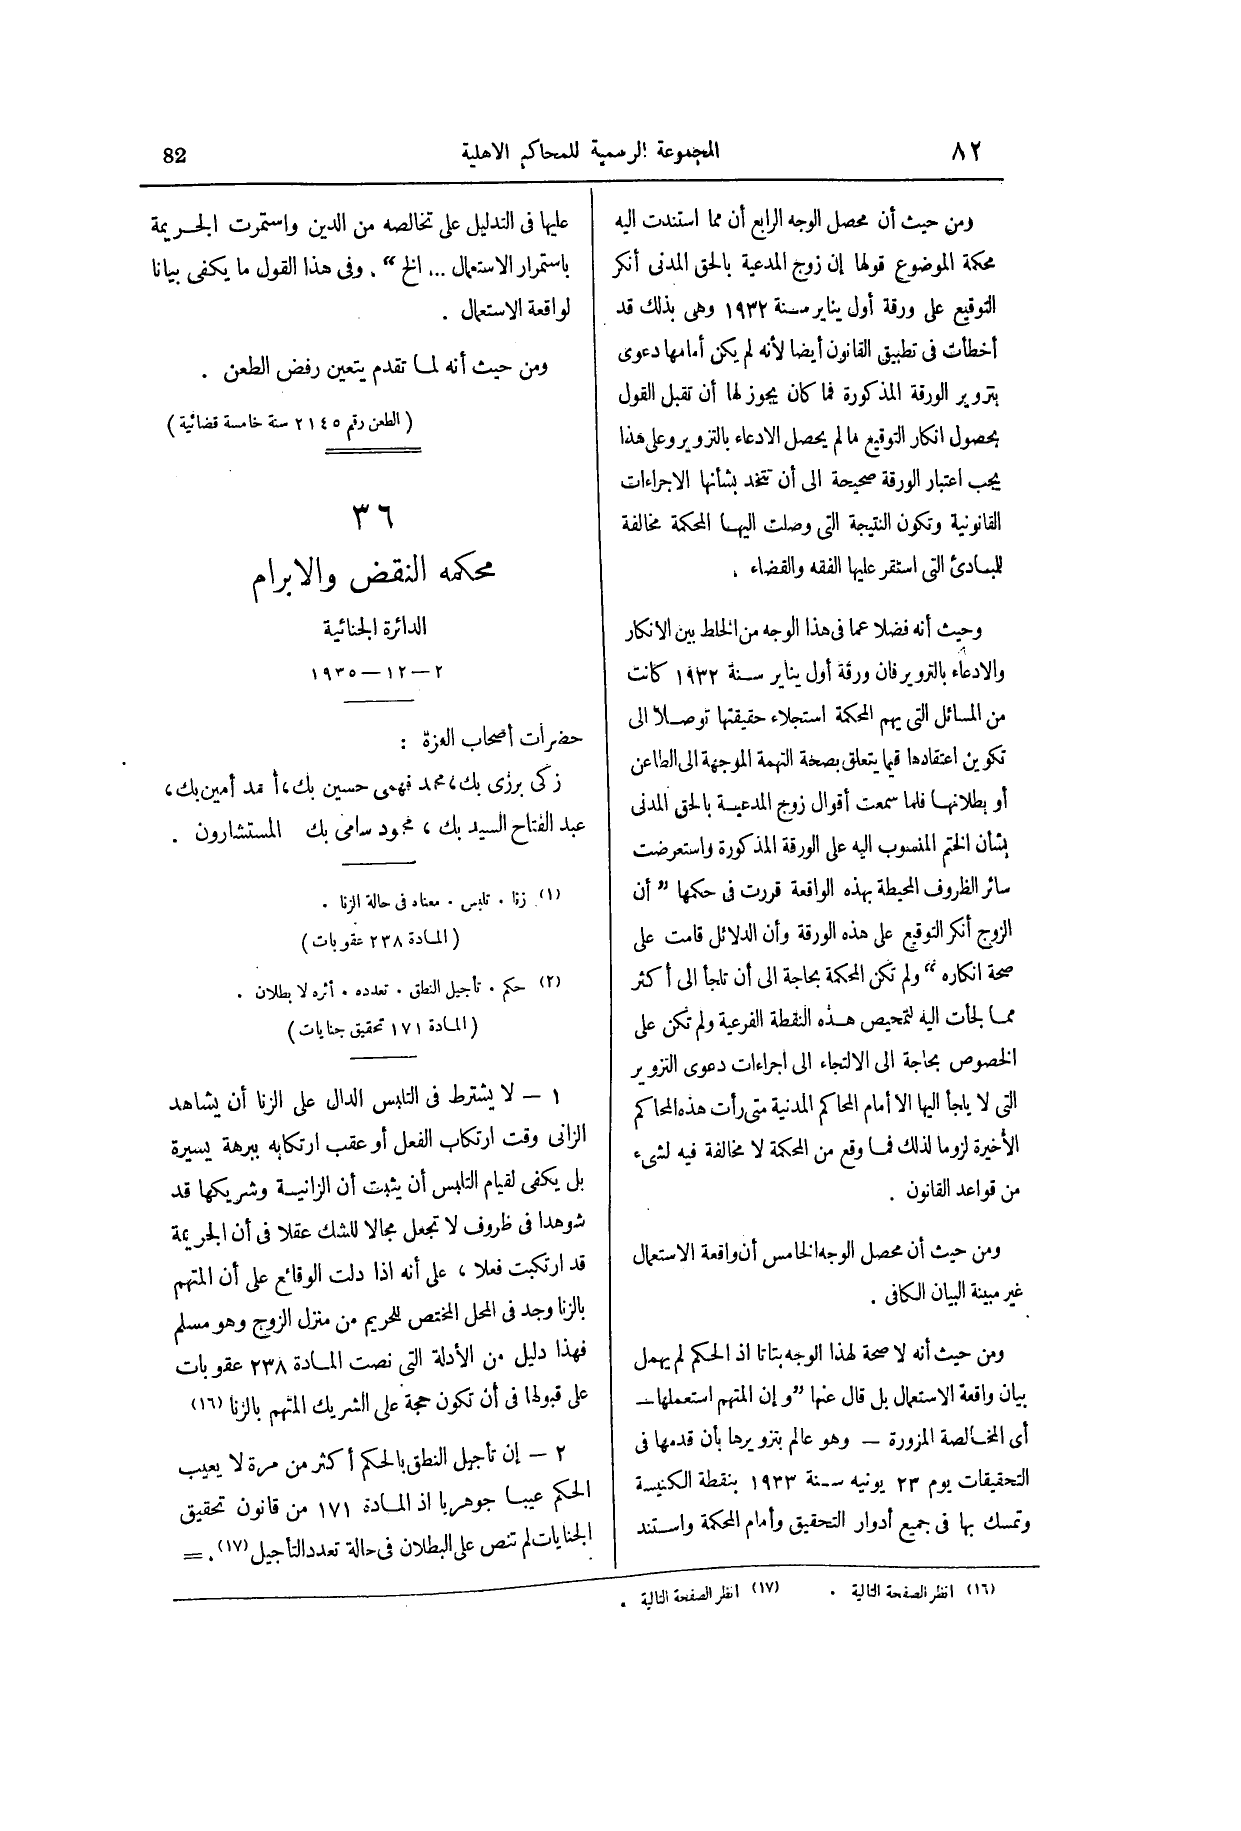 ٨٢
المجموعة الرسمية للمحاكم الاهلية
82
ومن حيث أن محصل الوجه الرابع أن مما استندت اليه
محكمة الموضوع قولها إن زوج المدعية بالحق المدنى أنكر
التوقيع على ورقة أول يناير سنة ١٩٣٢ وهى بذلك قد
أخطأت فى تطبيق القانون أيضا لأنه لم يكن أمامها دعوى
بتزوير الورقة المذكورة فما كان يجوز لها أن تقبل القول
بحصول انكار التوقيع ما لم يحصل الادعاء بالتزوير وعلى هذا
يجب اعتبار الورقة صحيحة الى أن تتخد بشأنها الاجراءات
القانونية وتكون النتيجة التى وصلت اليها المحكمة مخالفة
للبادئ التى استقر عليها الفقه والقضاء .
وحيث أنه فضلا عما فى هذا الوجه من الخلط بين الانكار
والادعاء بالتزوير فان ورقة أول يناير سنة ١٩٣٢ كانت
من المسائل التى يهم المحكمة استجلاء حقيقتها توصلا الى
تكوين اعتقادها فيما يتعلق بصحة التهمة الموجهة الى الطاعن
أو بطلانها فلما سمعت أقوال زوج المدعية بالحق المدنى
بشأن الختم المنسوب اليه على الورقة المذكورة واستعرضت
سائر الظروف المحيطة بهذه الواقعة قررت فى حكمها ” أن
الزوج أنكر التوقيع على هذه الورقة وأن الدلائل قامت على
صحة انكاره “ ولم تكن المحكمة بحاجة الى أن تلجأ الى أكثر
مما لجأت اليه لتمحيص هذه النقطة الفرعية ولم تكن على
الخصوص بحاجة الى الالتجاء الى اجراءات دعوى التزوير
التى لا يلجأ اليها الا أمام المحاكم المدنية متى رأت هذه المحاكم
الأخيرة لزوما لذلك فما وقع من المحكمة لا مخالفة فيه لشىء
من قواعد القانون .
ومن حيث أن محصل الوجه الخامس أن واقعة الاستعمال
غير مبينة البيان الكافى .
ومن حيث أنه لا صحة لهذا الوجه بتاتا اذ الحكم لم يهمل
بيان واقعة الاستعمال بل قال عنها ” و إن المتهم استعملها —
أى المخالصة المزورة — وهو عالم بتزويرها بأن قدمها فى
التحقيقات يوم ٢٣ يونيه سنة ١٩٣٣ بنقطة الكنيسة
وتمسك بها فى جميع أدوار التحقيق وأمام المحكمة واستند
عليها فى التدليل على تخالصه من الدين واستمرت الجريمة
باستمرار الاستعمال ... الخ “ . وفى هذا القول ما يكفى بيانا
لواقعة الاستعمال .
ومن حيث أنه لما تقدم يتعين رفض الطعن .
( الطعن رقم ٢١٤٥ سنة خامسة قضائية )
٣٦
محكمه النقض والابرام
الدائرة الجنائية
٢ — ١٢ — ١٩٣٥
حضرات أصحاب العزة :
زكى برزى بك ، محمد فهمى حسين بك ، أحمد أمين بك ،
عبد الفتاح السيد بك ، محمود سامى بك المستشارون .
(١) زنا . تلبس . معناه فى حالة الزنا .
( المادة ٢٣٨ عقوبات )
(٢) حكم . تأجيل النطق . تعدده . أثره لا بطلان .
( المادة ١٧١ تحقيق جنايات )
١ — لا يشترط فى التلبس الدال على الزنا أن يشاهد
الزانى وقت ارتكاب الفعل أو عقب ارتكابه ببرهة يسيرة
بل يكفى لقيام التلبس أن يثبت أن الزانية وشريكها قد
شوهدا فى ظروف لا تجعل مجالا للشك عقلا فى أن الجريمة
قد ارتكبت فعلا ، على أنه اذا دلت الوقائع على أن المتهم
بالزنا وجد فى المحل المختص للحريم من منزل الزوج وهو مسلم
فهذا دليل من الأدلة التى نصت المادة ٢٣٨ عقوبات
على قبولها فى أن تكون حجة على الشريك المتهم بالزنا (١٦)
٢ — إن تأجيل النطق بالحكم أكثر من مرة لا يعيب
الحكم عيبا جوهريا اذ المادة ١٧١ من قانون تحقيق
الجنايات لم تنص على البطلان فى حالة تعدد التأجيل (١٧) . =
(١٦) انظر الصفحة التالية .
(١٧) انظر الصفحة التالية .